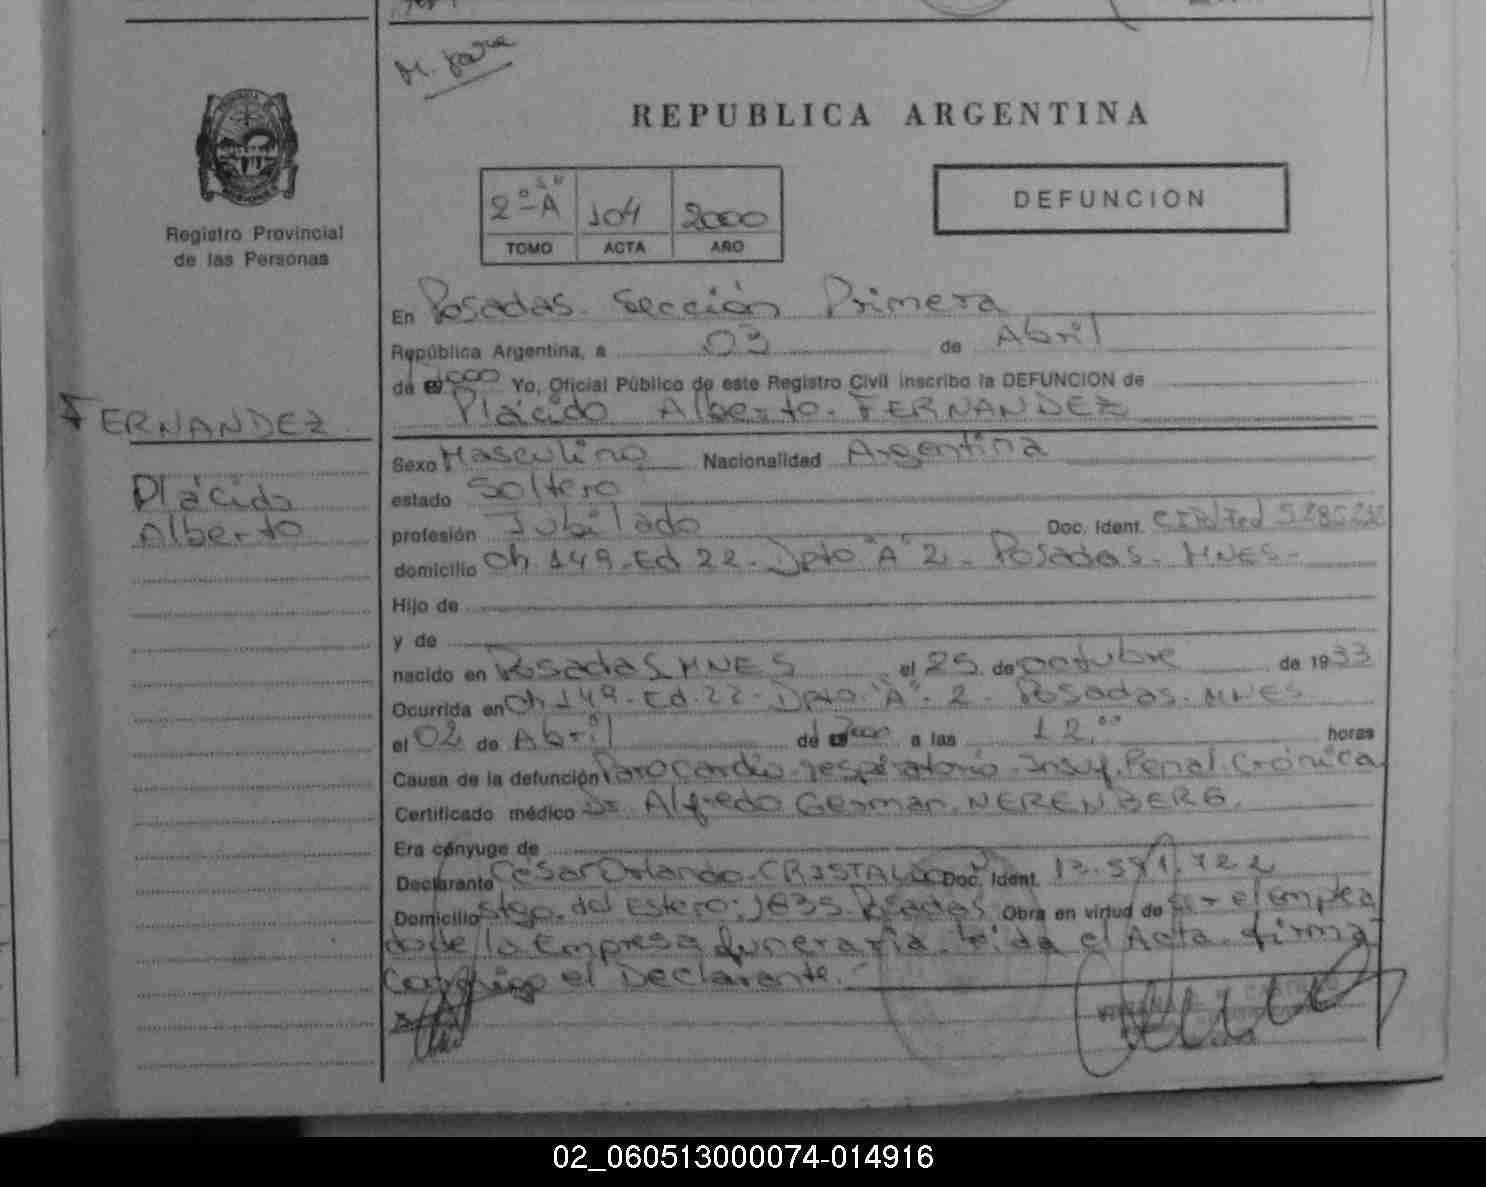 REPUBLICA ARGENTINA
Registro Provincial
de las Personas
2º "A" 104 2000
TOMO ACTA AÑO
DEFUNCION
En Posadas. Sección Primera
República Argentina, a 03 de Abril
de 2000 Yo, Oficial Público de este Registro Civil inscribo la DEFUNCION de
Plácido Alberto. FERNANDEZ
FERNANDEZ
Plácido
Alberto
Sexo Masculino Nacionalidad Argentina
estado Soltero
profesión Jubilado Doc. Ident.
domicilio Ch. 149. Ed 22. Dpto "A" 2. Posadas. MNES.
Hijo de
y de
nacido en Posadas MNES el 25 de octubre de 1933
Ocurrida en Ch 149. Ed. 22. Dpto. "A". 2. Posadas. MNES
el 02 de Abril de 2000 a las 12,00 horas
Causa de la defunción Paro cardio respiratorio. Insuf. Renal. Crónica
Certificado médico Dr. Alfredo German. NERENBERG.
Era cónyuge de
Declarante Cesar Orlando. CRISTALDO Doc. Ident.
Domicilio Stgo. del Estero: 1835. Posadas Obra en virtud de ser el emplea
do de la Empresa funeraria. leida el Acta. firma
Conmigo el Declarante.-
02_060513000074-014916